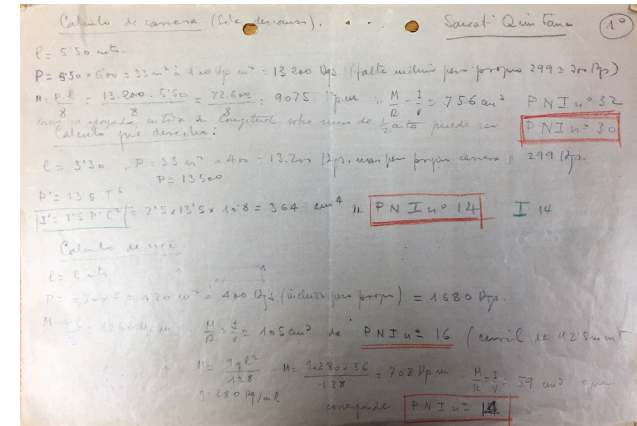 Calculo de carrera (Sala descanso). Sauratí Quintana 1º
l = 5'50 mts.
P = 5'50 × 6'00 = 33 m² à 400 Kp m² = 13.200 Kgs (falta incluir peso propio 299 = 300 Kgs)
M = P l / 8 = 13.200 . 5'50 / 8 = 72.600 / 8 = 9075 Kp.m " M/R = I/V = 756 cm³ PNI nº 32
longitud sobre muro de puede ser PNI nº 30
Calculo pie derecho:
l = 3'30 P = 33 m² × 400 = 13.200 Kgs. mas peso propio carrera, 299 Kgs.
P = 13500
P' = 13'5 T
I' = 2'5 P' l² = 2'5 × 13'5 × 10'8 = 364 cm⁴ " PNI nº 14 I 14
Calculo de
l = 6 mts
P = 4'20 m² à 400 Kgs (incluido peso propio) = 1680 Kgs.
M = M/R = I/V = 105 cm³ da PNI nº 16 (
M = 9ql²/128 M = 9.280.36/128 = 708 Kp.m M/R = I/V = 59 cm³ que
q = 280 Kg/ml corresponde PNI nº 14